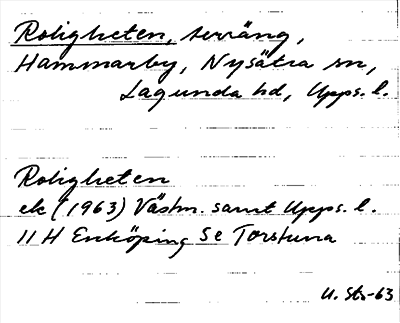 Roligheten, terräng,
Hammarby, Nysätra sn,
Lagunda hd, Upps. l.
Roligheten
ek (1963) Västm. samt Upps. l.
11 H Enköping Se Torstuna
U. Str-63